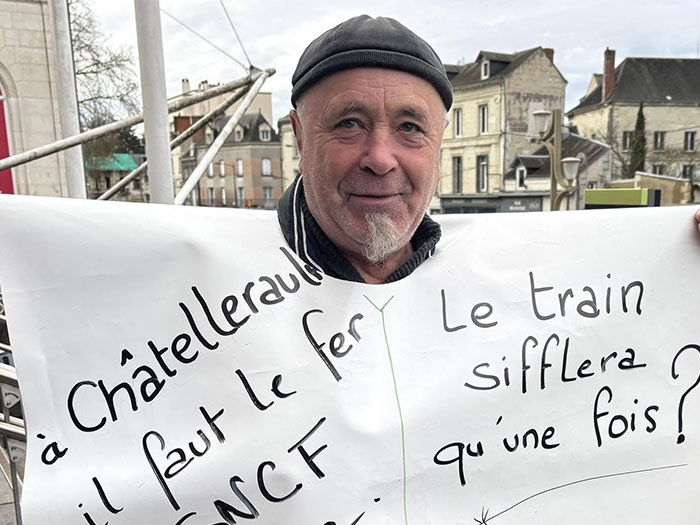 à Châtellerault
il faut le fer
SNCF
Le train
sifflera
qu'une fois ?